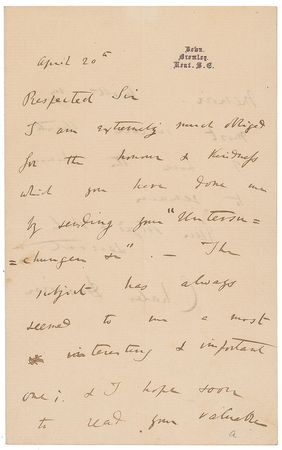 Down.
Bromley.
Kent. S.E.
April 20th
Respected Sir
I am extremely much obliged
for the honour & kindness
which you have done me
by sending your "Untersu=
=chungen
". — The
subject has always
seemed to me a most
interesting & important
one; & I hope soon
to read your valuable